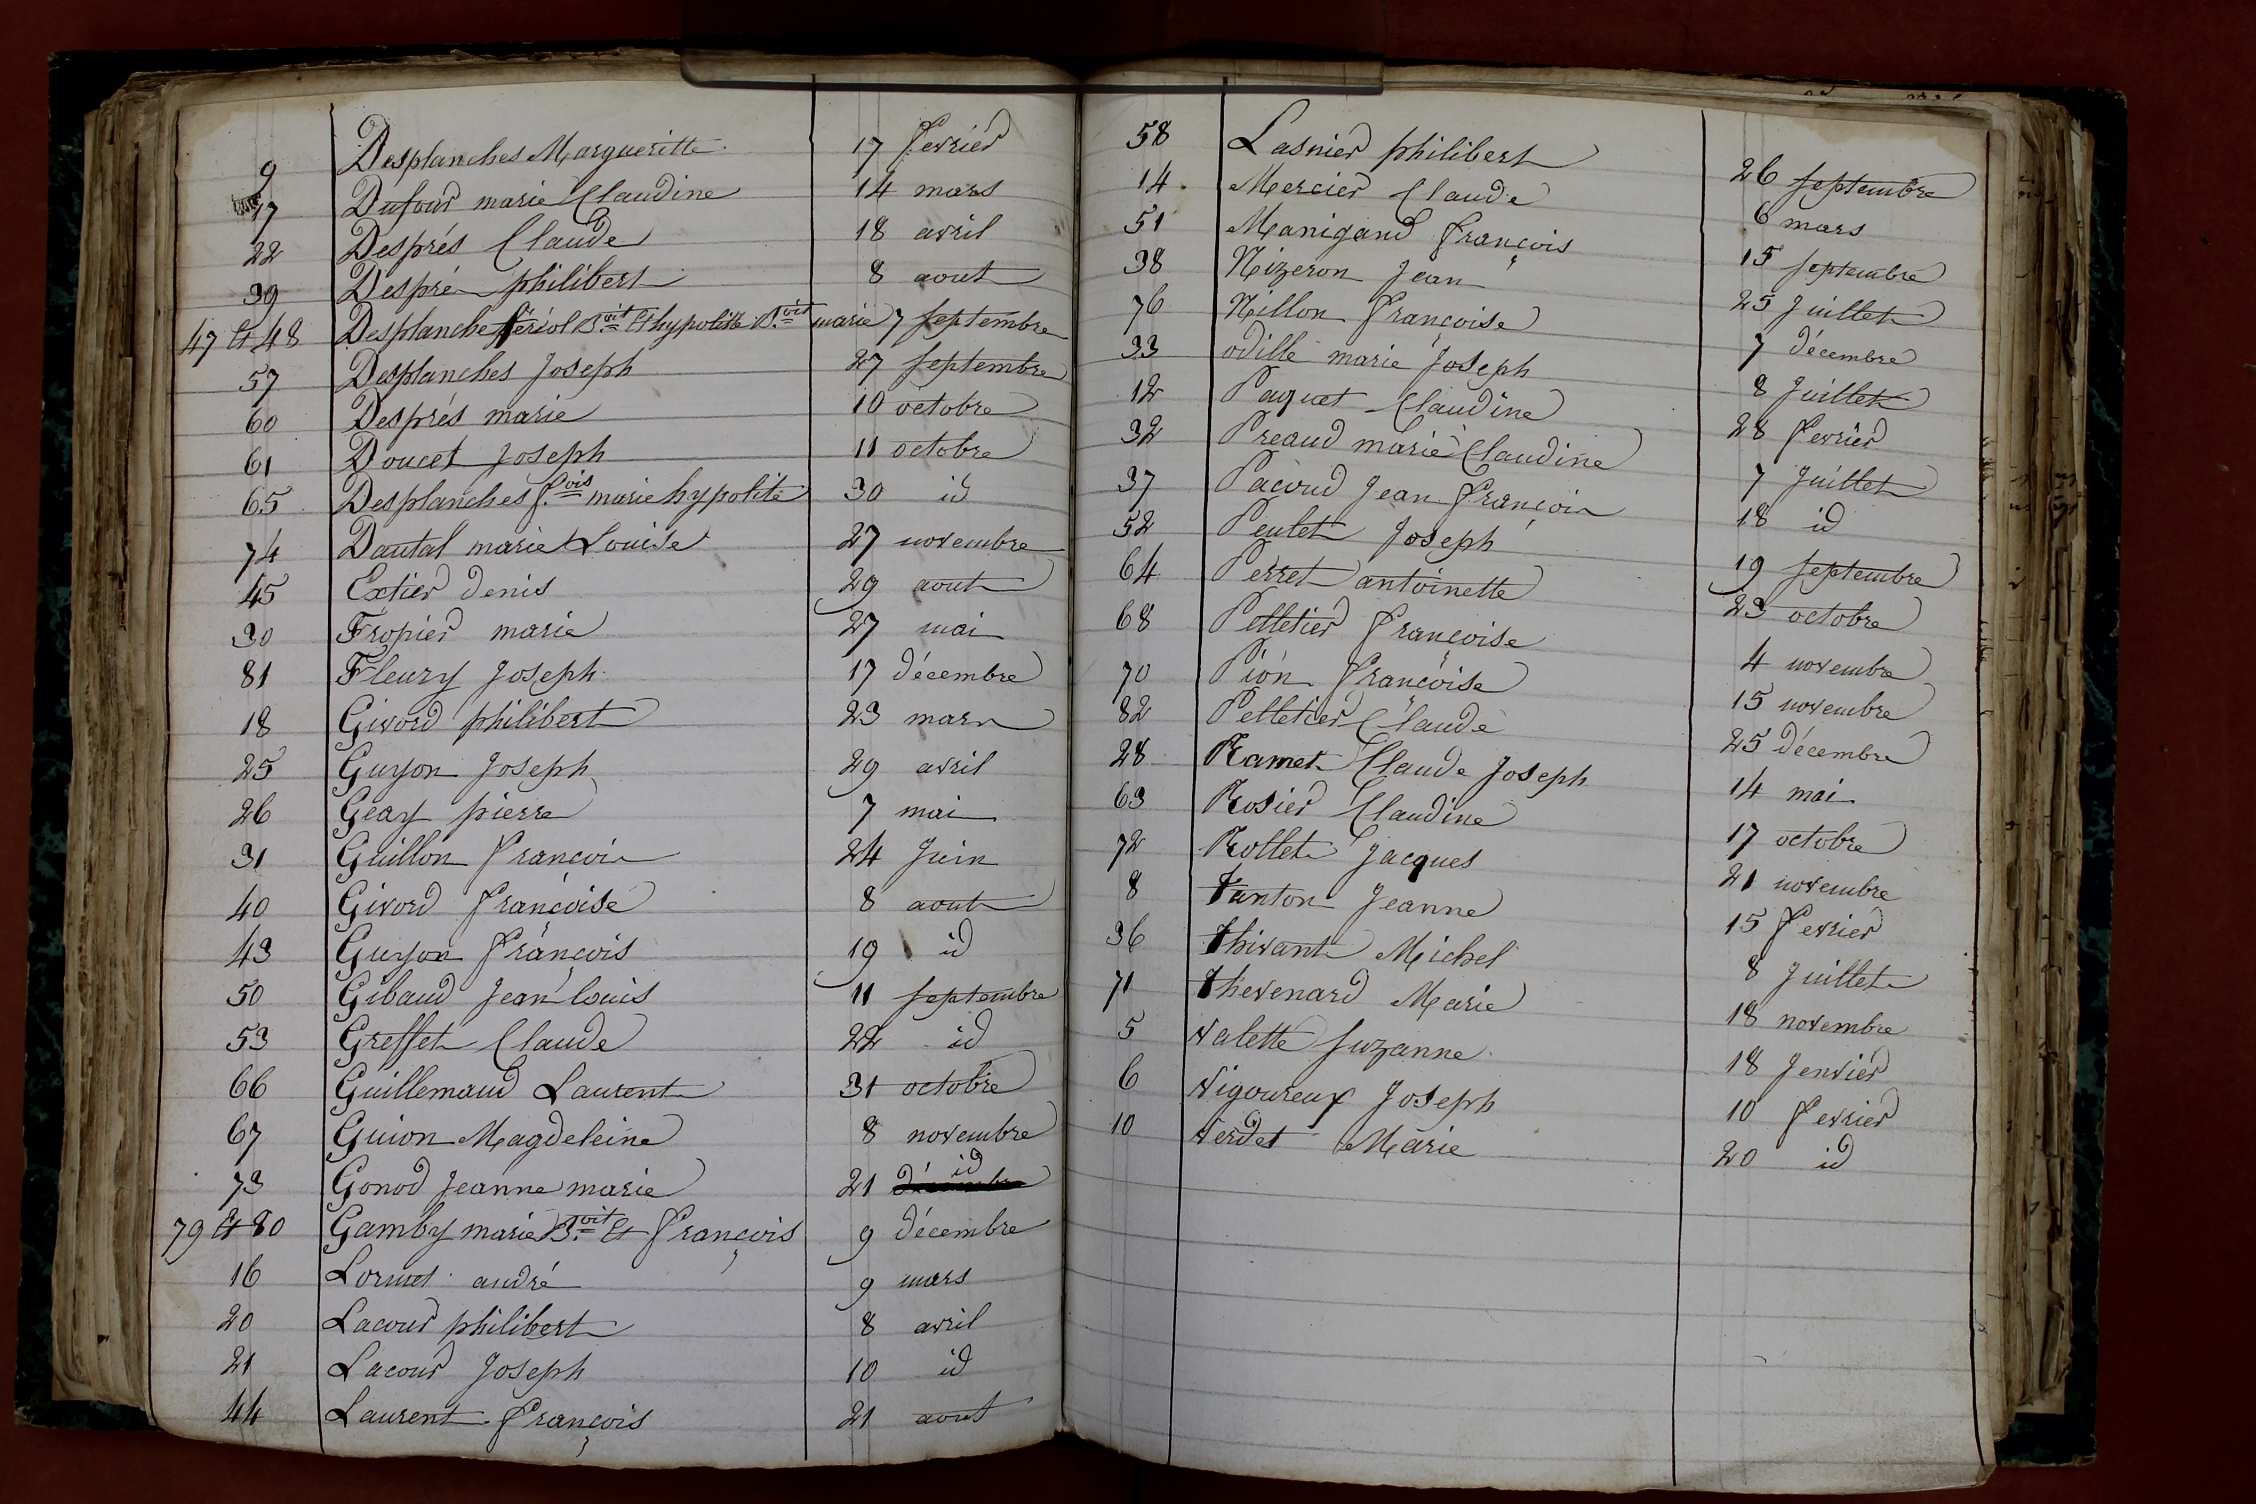 9 Desplanches Margueritte 17 fevrier
17 Dufour marie Claudine 14 mars
22 Després Claude 18 avril
39 Despré philibert 8 aout
47 et 48 Desplanche feréol B.oit et hypolitte B.oit marie 7 septembre
57 Desplanches Joseph 27 septembre
60 Després marie 10 octobre
61 Doucet Joseph 11 octobre
65 Desplanches f.ois marie hypolite 30 id
74 Dautal marie Louise 27 novembre
45 Extier denis 29 aout
30 Fropier marie 27 mai
81 Fleury Joseph 17 décembre
18 Givord philibert 23 mars
25 Guyon Joseph 29 avril
26 Geay pierre 7 mai
31 Guillon françois 24 Juin
40 Givord françoise 8 aout
43 Guyon françois 19 id
50 Gibaud Jean louis 11 septembre
53 Greffet Claude 22 id
66 Guillemaud Laurent 31 octobre
67 Guion Magdeleine 8 novembre
73 Gonod Jeanne marie 21 décembre id
79 et 80 Gamby marie B.oit et françois 9 décembre
16 Lormet andré 9 mars
20 Lacour philibert 8 avril
21 Lacour Joseph 10 id
44 Laurent françois 21 aout
58 Lasnier philibert 26 septembre
14 Mercier Claude 6 mars
51 Manigand françois 15 septembre
38 Nizeron Jean 25 Juillet
76 Nillon françoise 7 décembre
33 odille marie Joseph 8 Juillet
12 Paquet Claudine 28 fevrier
32 Preaud marie Claudine 7 Juillet
37 Pacoud Jean françois 18 id
52 Peulet Joseph 19 septembre
64 Perret antoinette 23 octobre
68 Pelletier françoise 4 novembre
70 Pion françoise 15 novembre
82 Pelletier Claude 25 décembre
28 Ramet Claude Joseph 14 mai
63 Rosier Claudine 17 octobre
72 Rollet Jacques 21 novembre
8 tanton Jeanne 15 fevrier
36 thivant Michel 8 Juillet
71 thevenard Marie 18 novembre
5 valette suzanne 18 Jenvier
6 vigoureux Joseph 10 fevrier
10 verdet Marie 20 id